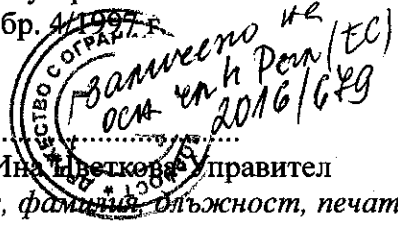 бр. 4/1997 г.
заличено на
осн чл 4 Регл (ЕС)
2016/679
СТВО С ОГРАН
Ина Цветкова Управител
, фамилия, длъжност, печат